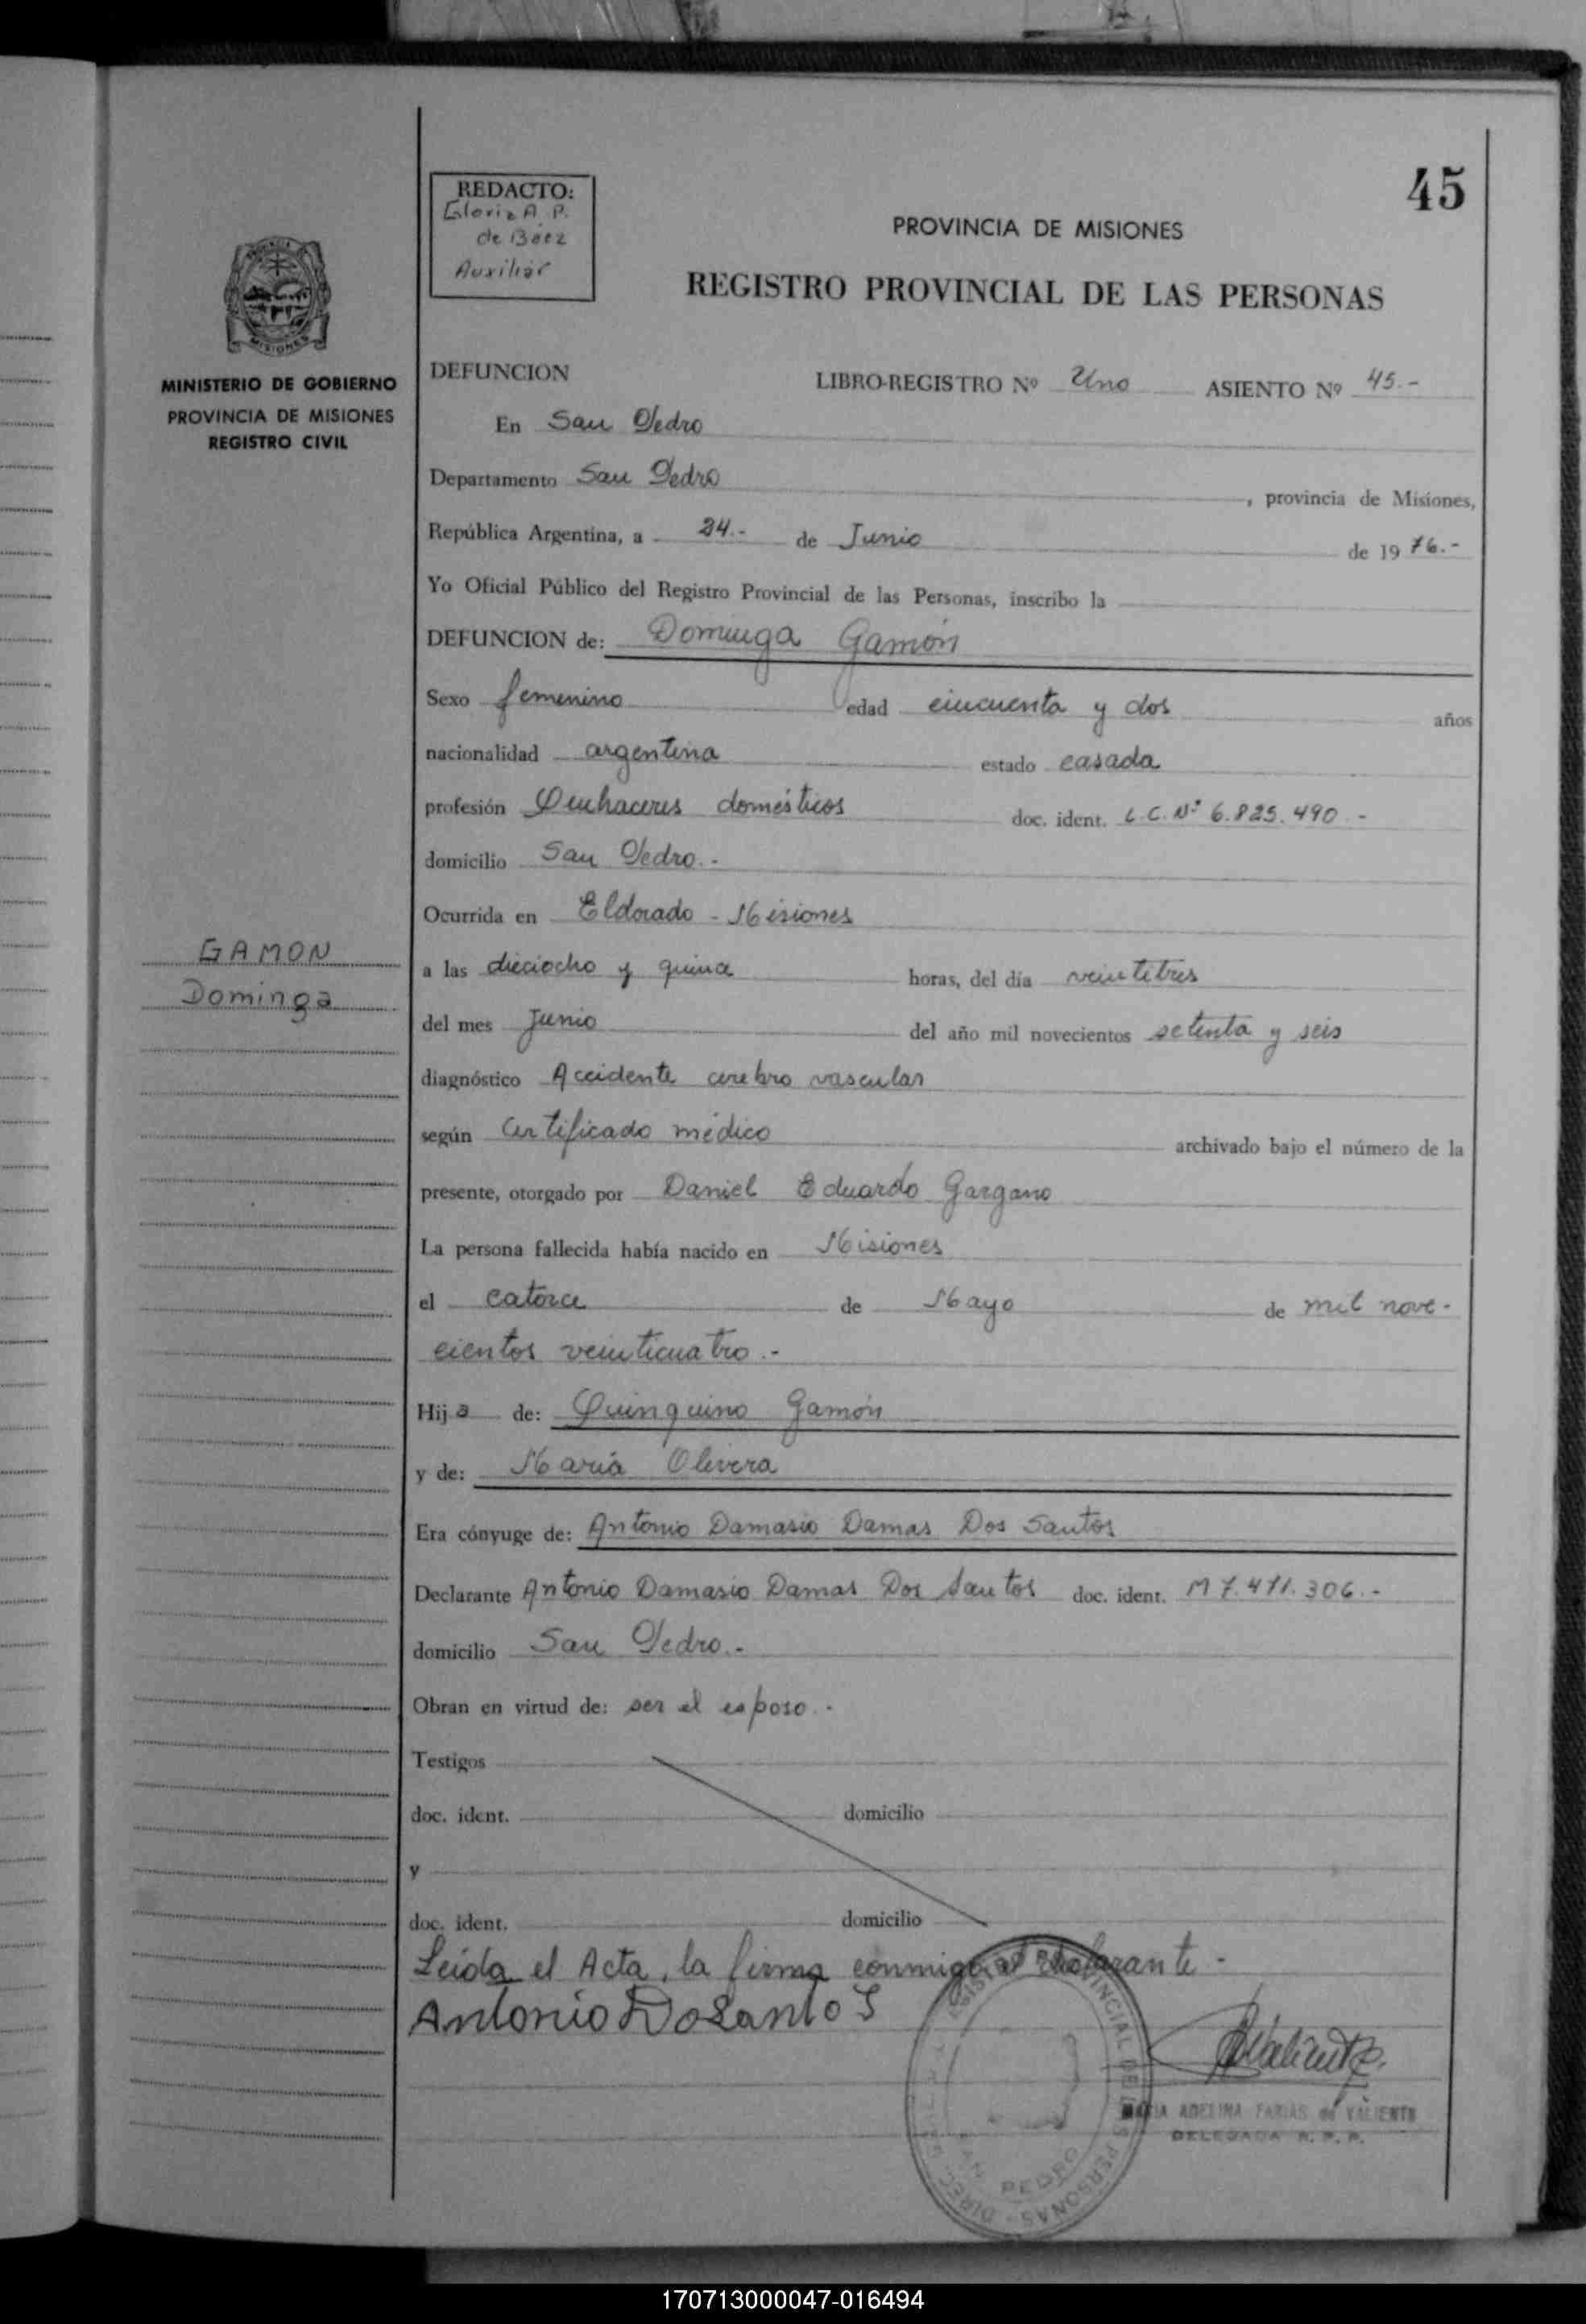 45
REDACTO:
Gloria A. P.
de Báez
Auxiliar
PROVINCIA DE MISIONES
REGISTRO PROVINCIAL DE LAS PERSONAS
MISIONES
MINISTERIO DE GOBIERNO
PROVINCIA DE MISIONES
REGISTRO CIVIL
GAMON
Dominga
DEFUNCION LIBRO-REGISTRO Nº Uno ASIENTO Nº 45.-
En San Pedro
Departamento San Pedro, provincia de Misiones,
República Argentina, a 24.- de Junio de 1976.-
Yo Oficial Público del Registro Provincial de las Personas, inscribo la
DEFUNCION de: Dominga Gamón
Sexo femenino edad cincuenta y dos años
nacionalidad argentina estado casada
profesión Quehaceres domésticos doc. ident. L.C. Nº 6.825.490.-
domicilio San Pedro.-
Ocurrida en Eldorado - Misiones
a las dieciocho y quince horas, del día veintitres
del mes Junio del año mil novecientos setenta y seis
diagnóstico Accidente cerebro vascular
según Certificado médico archivado bajo el número de la
presente, otorgado por Daniel Eduardo Gargano
La persona fallecida había nacido en Misiones
el catorce de Mayo de mil nove-
cientos veinticuatro.-
Hija de: Quinquino Gamón
y de: María Olivera
Era cónyuge de: Antonio Damasio Damas Dos Santos
Declarante Antonio Damasio Damas Dos Santos doc. ident. M 7.471.306.-
domicilio San Pedro.-
Obran en virtud de: ser el esposo.-
Testigos
doc. ident. domicilio
y
doc. ident. domicilio
Leída el Acta, la firma conmigo el declarante.-
Antonio Dosantos
MARIA ADELINA FARIAS de VALIENTE
DELEGADA R. P. P.
SAN PEDRO
170713000047-016494